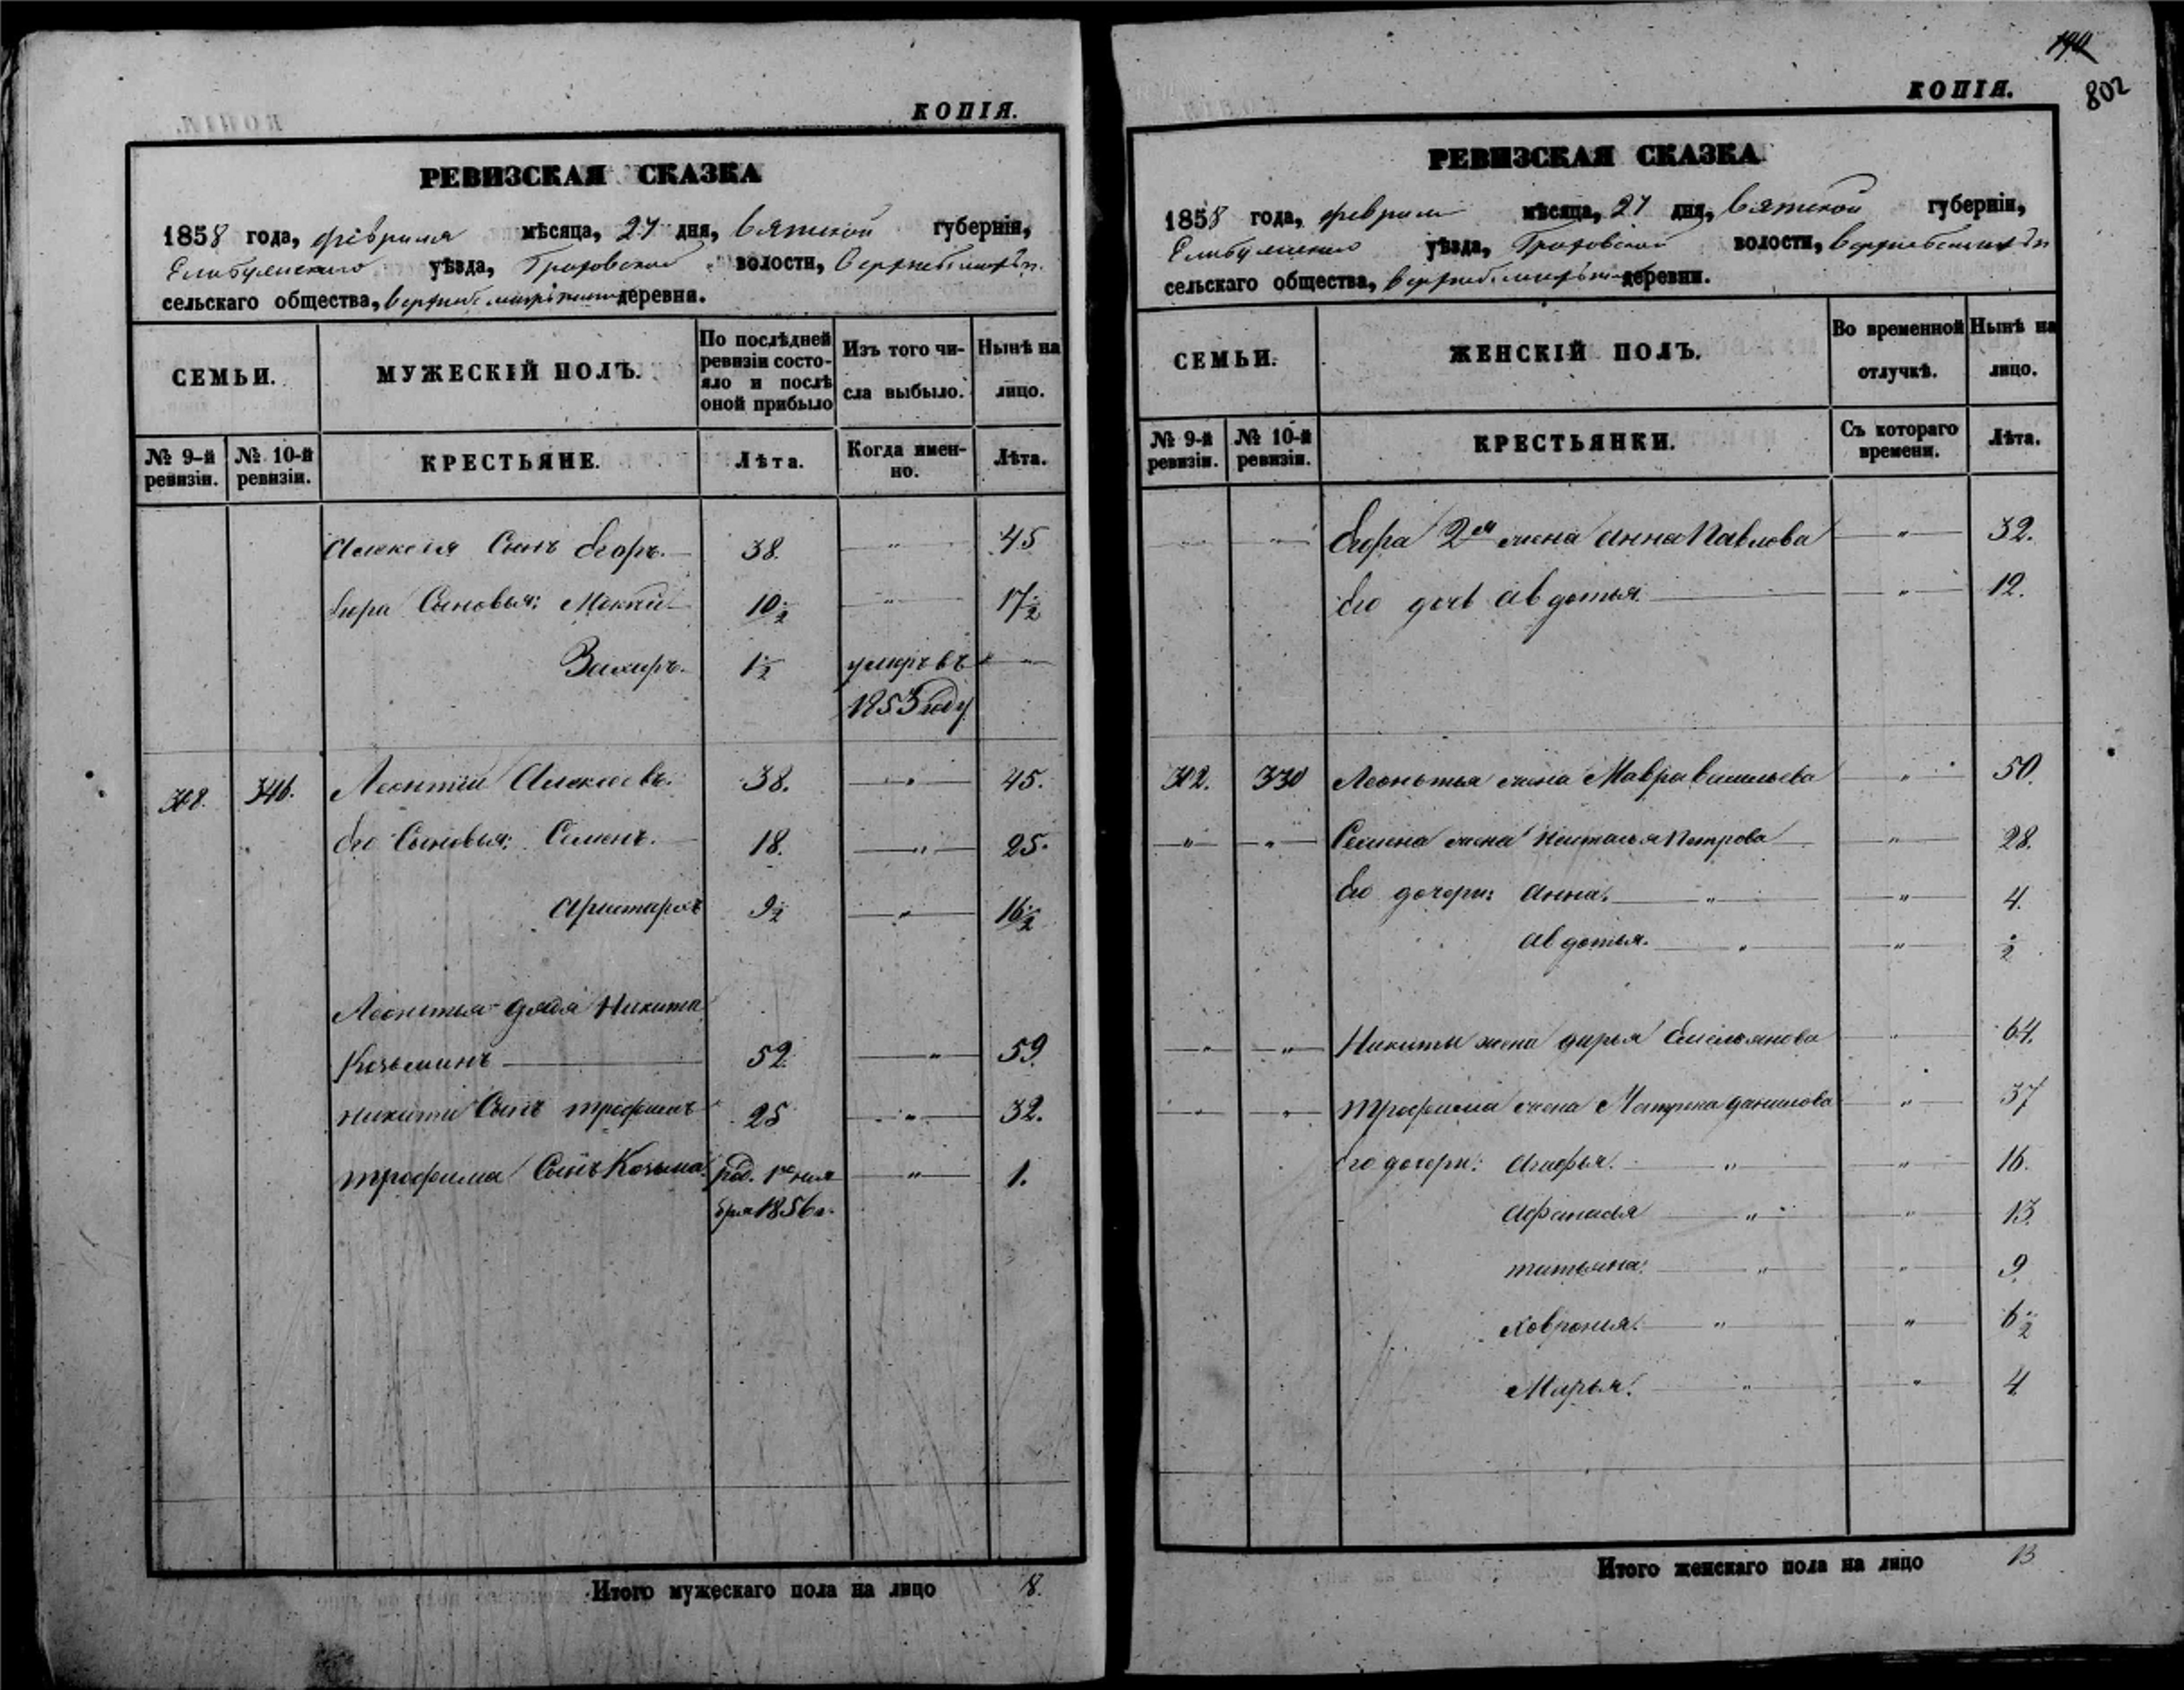 КОПІЯ.
РЕВИЗСКАЯ СКАЗКА
1858 года, февраля мѣсяца, 27 дня, Вятской губерніи,
Елабужскаго уѣзда, Граховской волости,
сельскаго общества, деревни.
СЕМЬИ. МУЖЕСКІЙ ПОЛЪ. По послѣдней ревизіи состояло и послѣ оной прибыло Изъ того числа выбыло. Нынѣ на лицо.
№ 9-й ревизіи. № 10-й ревизіи. КРЕСТЬЯНЕ. Лѣта. Когда именно. Лѣта.
Алексея Сынъ Егоръ. 38. — " — 45
Егора Сыновья: Мокий 10 ½ — " — 17 ½
Захаръ. 1 ½ умеръ въ — " —
1853 году
308. 346. Леонтий Алексеевъ. 38. — " — 45.
Его Сыновья: Семенъ. 18. — " — 25.
Аристархъ 9 ½ — " — 16 ½
Леонтья дядя Никита
Козьминъ 52. — " — 59.
Никиты Сынъ Трофимъ 25 — " — 32.
Трофима Сынъ Козьма род. 1го ноя — " — 1.
бря 1856 г.
Итого мужескаго пола на лицо 8.
190
802
КОПІЯ.
РЕВИЗСКАЯ СКАЗКА
1858 года, февраля мѣсяца, 27 дня, Вятской губерніи,
Елабужскаго уѣзда, Граховской волости,
сельскаго общества, деревни.
СЕМЬИ. ЖЕНСКІЙ ПОЛЪ. Во временной отлучкѣ. Нынѣ на лицо.
№ 9-й ревизіи. № 10-й ревизіи. КРЕСТЬЯНКИ. Съ котораго времени. Лѣта.
— " — — " — Егора 2я жена Анна Павлова — " — 32.
Его дочь Авдотья. — " — 12.
302. 330 Леонтья жена Мавра Васильева — " — 50.
— " — — " — Семена жена Наталья Петрова — " — 28.
Его дочери: Анна. — " — — " — 4.
Авдотья. — " — — " — ½
— " — — " — Никиты жена Дарья Емельянова — " — 64.
— " — — " — Трофима жена Матрена Данилова — " — 37
Его дочери: Агафья. — " — — " — 16.
Афанасья — " — — " — 13.
Татьяна. — " — — " — 9.
Ховронья. — " — — " — 6 ½
Марья. — " — — " — 4.
Итого женскаго пола на лицо 13